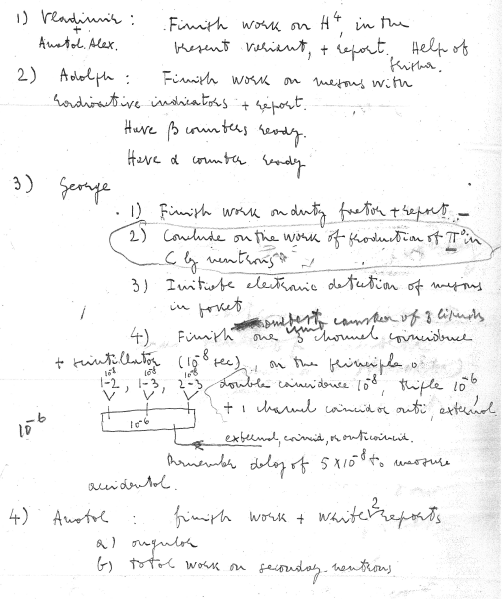 1) Vladimir : Finish work on H⁴, in the
+
Anatol. Alex. present variant, + report. Help of
Grisha.
2) Adolph : Finish work on mesons with
radioactive indicators + report.
Have β counters ready.
Have α counter ready
3) George
1) Finish work on duty factor + report
2) Conclude on the work of production of π⁰ in
C by neutrons
3) Initiate electronic detection of mesons
in
4) Finish one 3 channel coincidence
+ scintillator (10⁻⁸ sec), on the principle
10⁻⁸ 10⁻⁸ 10⁻⁸
1-2, 1-3, 2-3 double coincidence 10⁻⁸, triple 10⁻⁶,
+ 1 channel coincid or anti, external
10⁻⁶
10⁻⁶
external, coincid, or anticoincid.
Remember delay of 5 x 10⁻⁸ to measure
accidental.
4) Anatol : finish work + write 2 reports
a) angular
b) total work on secondary neutrons